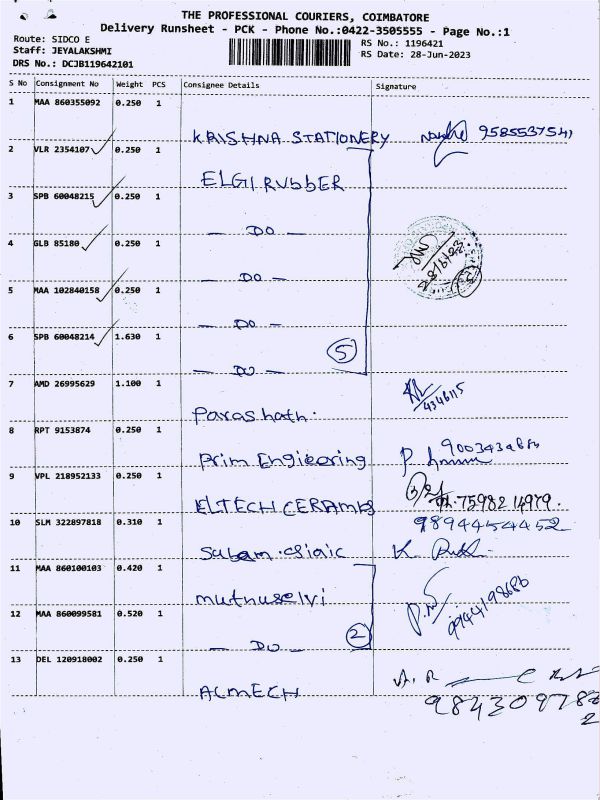 THE PROFESSIONAL COURIERS, COIMBATORE
Delivery Runsheet - PCK - Phone No.:0422-3505555 - Page No.:1
Route: SIDCO E
RS No.: 1196421
Staff: JEYALAKSHMI
RS Date: 28-Jun-2023
DRS No.: DCJB119642101
S No Consignment No Weight PCS Consignee Details Signature
1 MAA 860355092 0.250 1
KRISHNA STATIONERY 9585537541
2 VLR 2354107 0.250 1
ELGI RUBBER
3 SPB 60048215 0.250 1
— DO —
4 GLB 85180 0.250 1
— DO —
5 MAA 102840158 0.250 1
— DO —
6 SPB 60048214 1.630 1
— DO — 5
7 AMD 26995629 1.100 1
Parashath. 4346115
8 RPT 9153874 0.250 1
Prim Engieering
9 VPL 218952133 0.250 1
ELTECH CERAMKS 75982 14979.
10 SLM 322897818 0.310 1 9894454452
11 MAA 860100103 0.420 1
muthuselvi
12 MAA 860099581 0.520 1 9944198686
— DO — 2
13 DEL 120918002 0.250 1
ACMECH